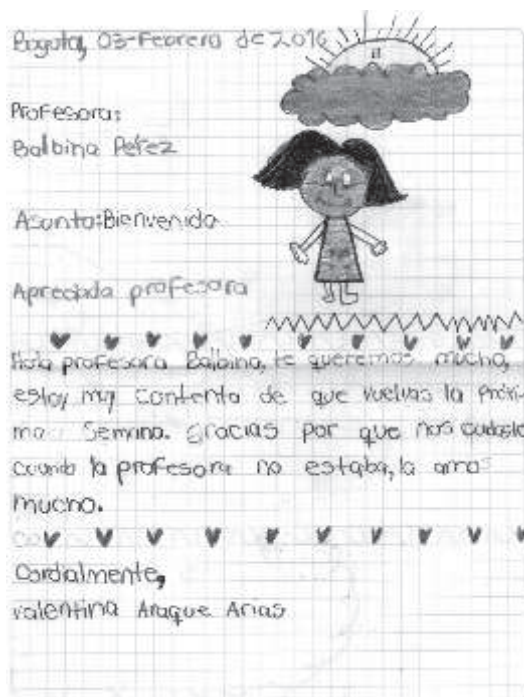 Bogotá, 03-Febrero de 2016
Profesora:
Balbina Perez
Asunto: Bienvenida
Apreciada profesora
Hola profesora Balbina, te queremos mucho,
estoy muy contenta de que vuelvas la próxi-
ma Semana. gracias por que nos cuidaste
cuando la profesora no estaba, la amo
mucho.
Cordialmente,
valentina Araque Arias